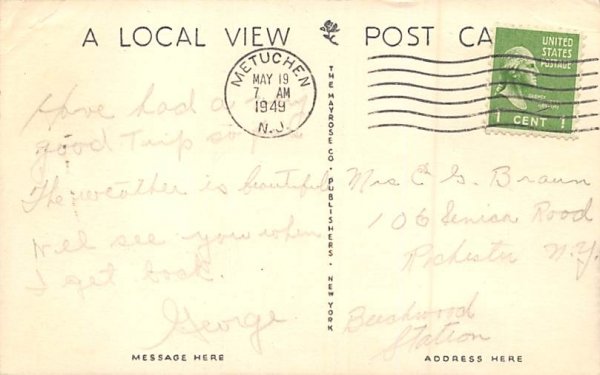 A LOCAL VIEW POST CA
METUCHEN
MAY 19
7 AM
1949
N.J.
UNITED
STATES
POSTAGE
1 CENT 1
Have had a very
good Trip so far
The weather is beautiful
Will see you when
I get back.
George.
THE MAYROSE CO. PUBLISHERS. NEW YORK
Mrs C G. Braun
106 Road
Rochester N.Y.
Beechwood
Station
MESSAGE HERE
ADDRESS HERE